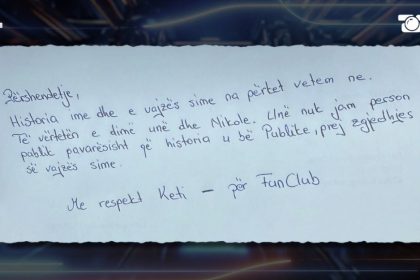 Përshendetje,
Historia ime dhe e vajzës sime na përtet vetem ne.
Të vërtetën e dimë unë dhe Nikole. Unë nuk jam person
publik pavarësisht që historia u bë Publike, prej zgjedhjes
së vajzës sime.
Me respekt Keti – për FunClub